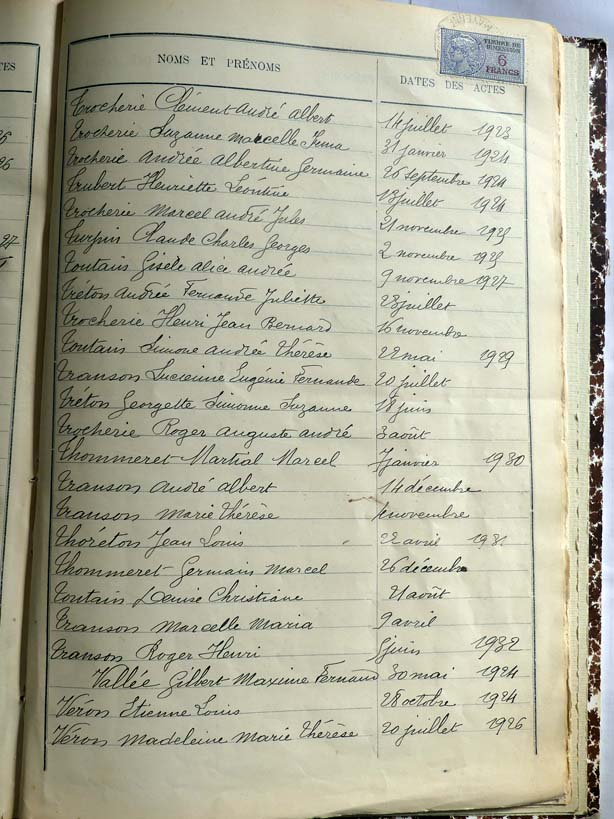 TES
NOMS ET PRÉNOMS
DATES DES ACTES
TIMBRE DE
DIMENSION
6
FRANCS
Trocherie Clément André Albert 14 juillet 1923
Trocherie Suzanne Marcelle Irma 31 janvier 1924
Trocherie Andrée Albertine Germaine 26 septembre 1924
Trubert Henriette Léontine 13 juillet 1924
Trocherie Marcel André Jules 21 novembre 1925
Turpin Claude Charles Georges 2 novembre 1925
Toutain Gisèle Alice Andrée 9 novembre 1927
Tréton Andrée Fernande Juliette 28 juillet
Trocherie Henri Jean Bernard 16 novembre
Toutain Simone Andrée Thérèse 22 mai 1929
Transon Lucienne Eugénie Fernande 20 juillet
Treton Georgette Simonne Suzanne 18 juin
Trocherie Roger Auguste André 3 août
Thommeret Martial Marcel 7 janvier 1930
Transon André Albert 14 décembre
Transon Marie Thérèse novembre
Thoreton Jean Louis 22 avril 1931
Thommeret Germain Marcel 26 décembre
Toutain Denise Christiane 21 août
Transon Marcelle Maria 9 avril
Transon Roger Henri juin 1932
Vallée Gilbert Maxime Fernand 30 mai 1924
Véron Etienne Louis 28 octobre 1924
Véron Madeleine Marie Thérèse 20 juillet 1926